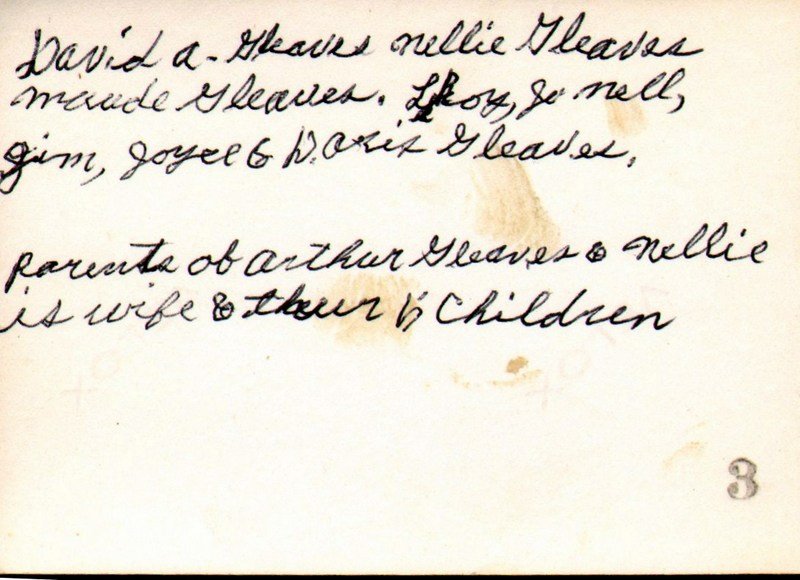 David a. Gleaves Nellie Gleaves
maude Gleaves. LeRoy, Jo nell,
Jim, Joyce & Doris Gleaves.
parents of Arthur Gleaves & Nellie
is wife & thur 5 Children
3